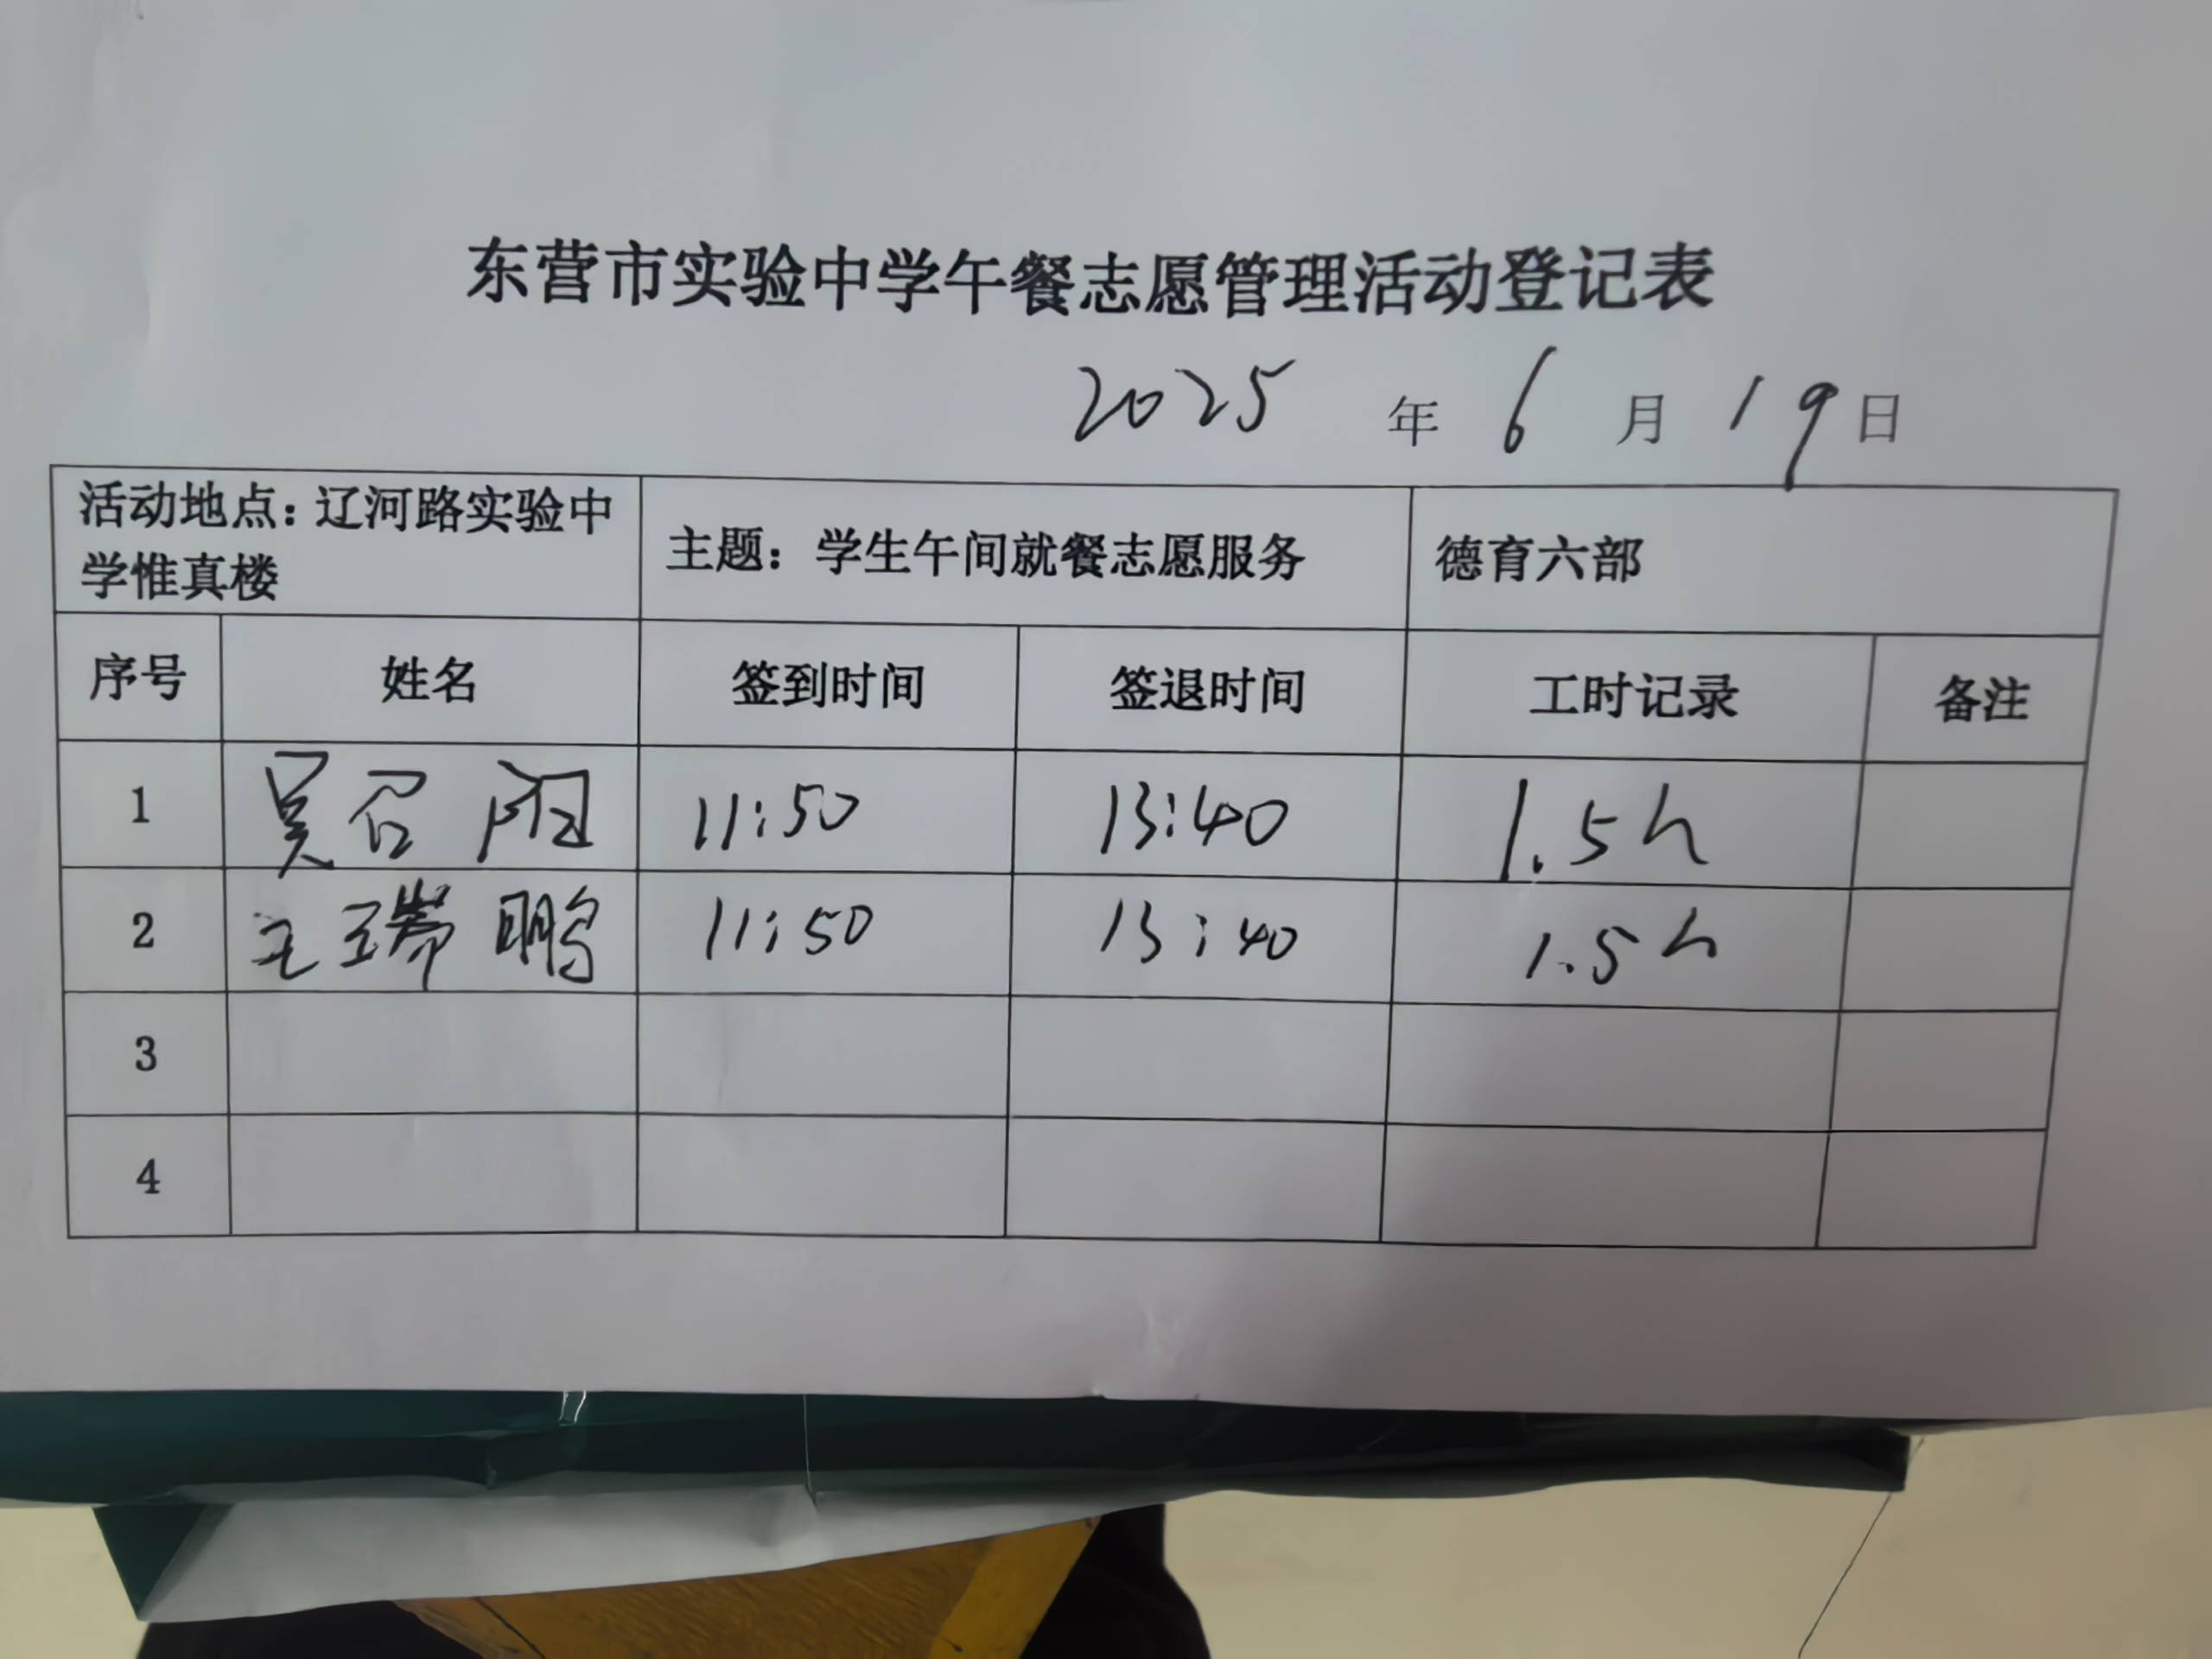 东营市实验中学午餐志愿管理活动登记表
2025 年 6 月 19 日
活动地点：辽河路实验中
学惟真楼
主题：学生午间就餐志愿服务
德育六部
序号 姓名 签到时间 签退时间 工时记录 备注
1 吴召阳 11:50 13:40 1.5h
2 王瑞鹏 11:50 13:40 1.5h
3
4